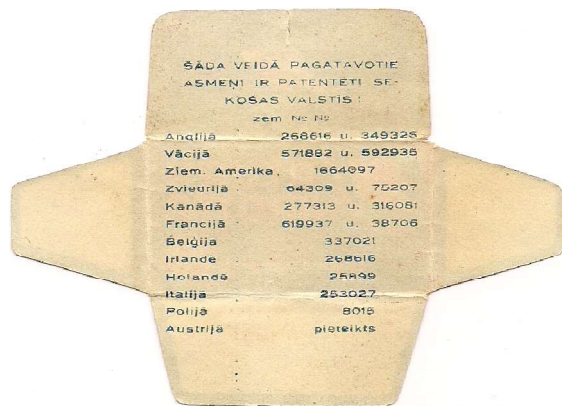 ŠĀDA VEIDĀ PAGATAVOTIE
ASMEŅI IR PATENTĒTI SE-
KOŠAS VALSTĪS:
zem № №
Anglijā 268616 u. 349325
Vācijā 571882 u. 592935
Ziem. Amerika, 1664097
Zviedrijā 64309 u. 75207
Kanādā 277313 u. 316081
Francijā 619937 u. 38706
Beļģija 337021
Irlande 268616
Holandē 25899
Itālijā 253027
Polijā 8015
Austrijā pieteikts